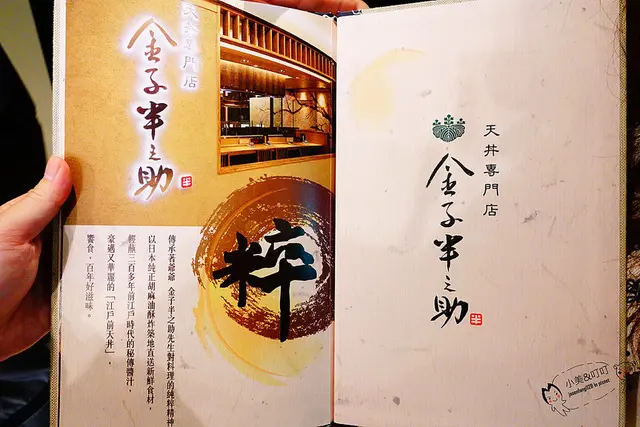 天丼專門店
金子半之助
半
粹
傳承著爺爺 金子半之助先生對料理的純粹精神
以日本純正胡麻油酥炸築地直送新鮮食材，
輕蘸三百多年前江戶時代的秘傳醬汁，
豪邁又華麗的「江戶前天丼」，
饗食，百年好滋味。
天丼専門店
金子半之助
半
小美&叮叮